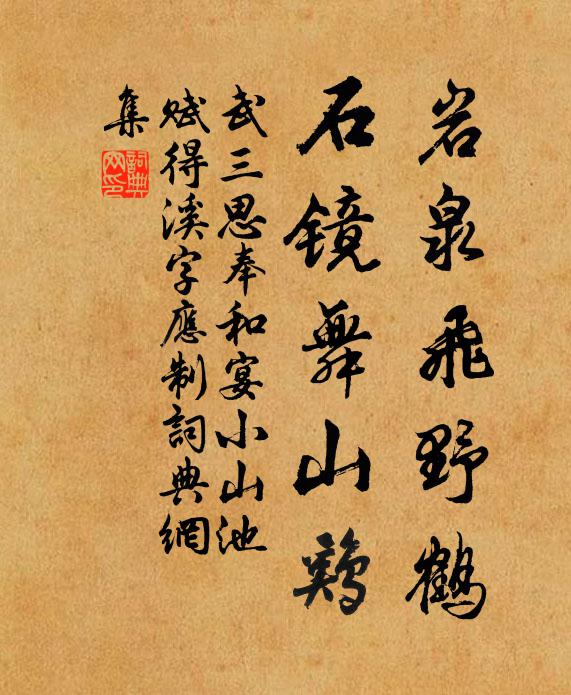 岩泉飛野鶴
石鏡舞山鷄
武三思奉和宴小山池
賦得溪字應制詞典網
集
詞典網印